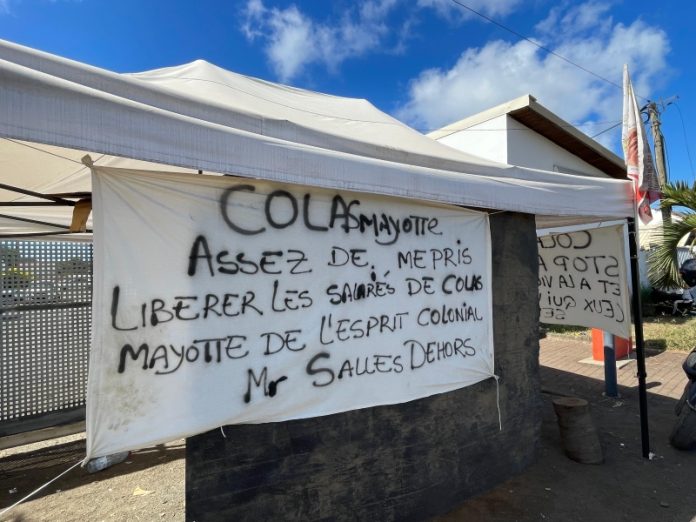 COLAS MAYOTTE
ASSEZ DE MEPRIS
LIBERER LES SALARÉS DE COLAS
MAYOTTE DE L'ESPRIT COLONIAL
Mr SALLES DEHORS
STOP A
ET A LA
CEUX QUI
SE